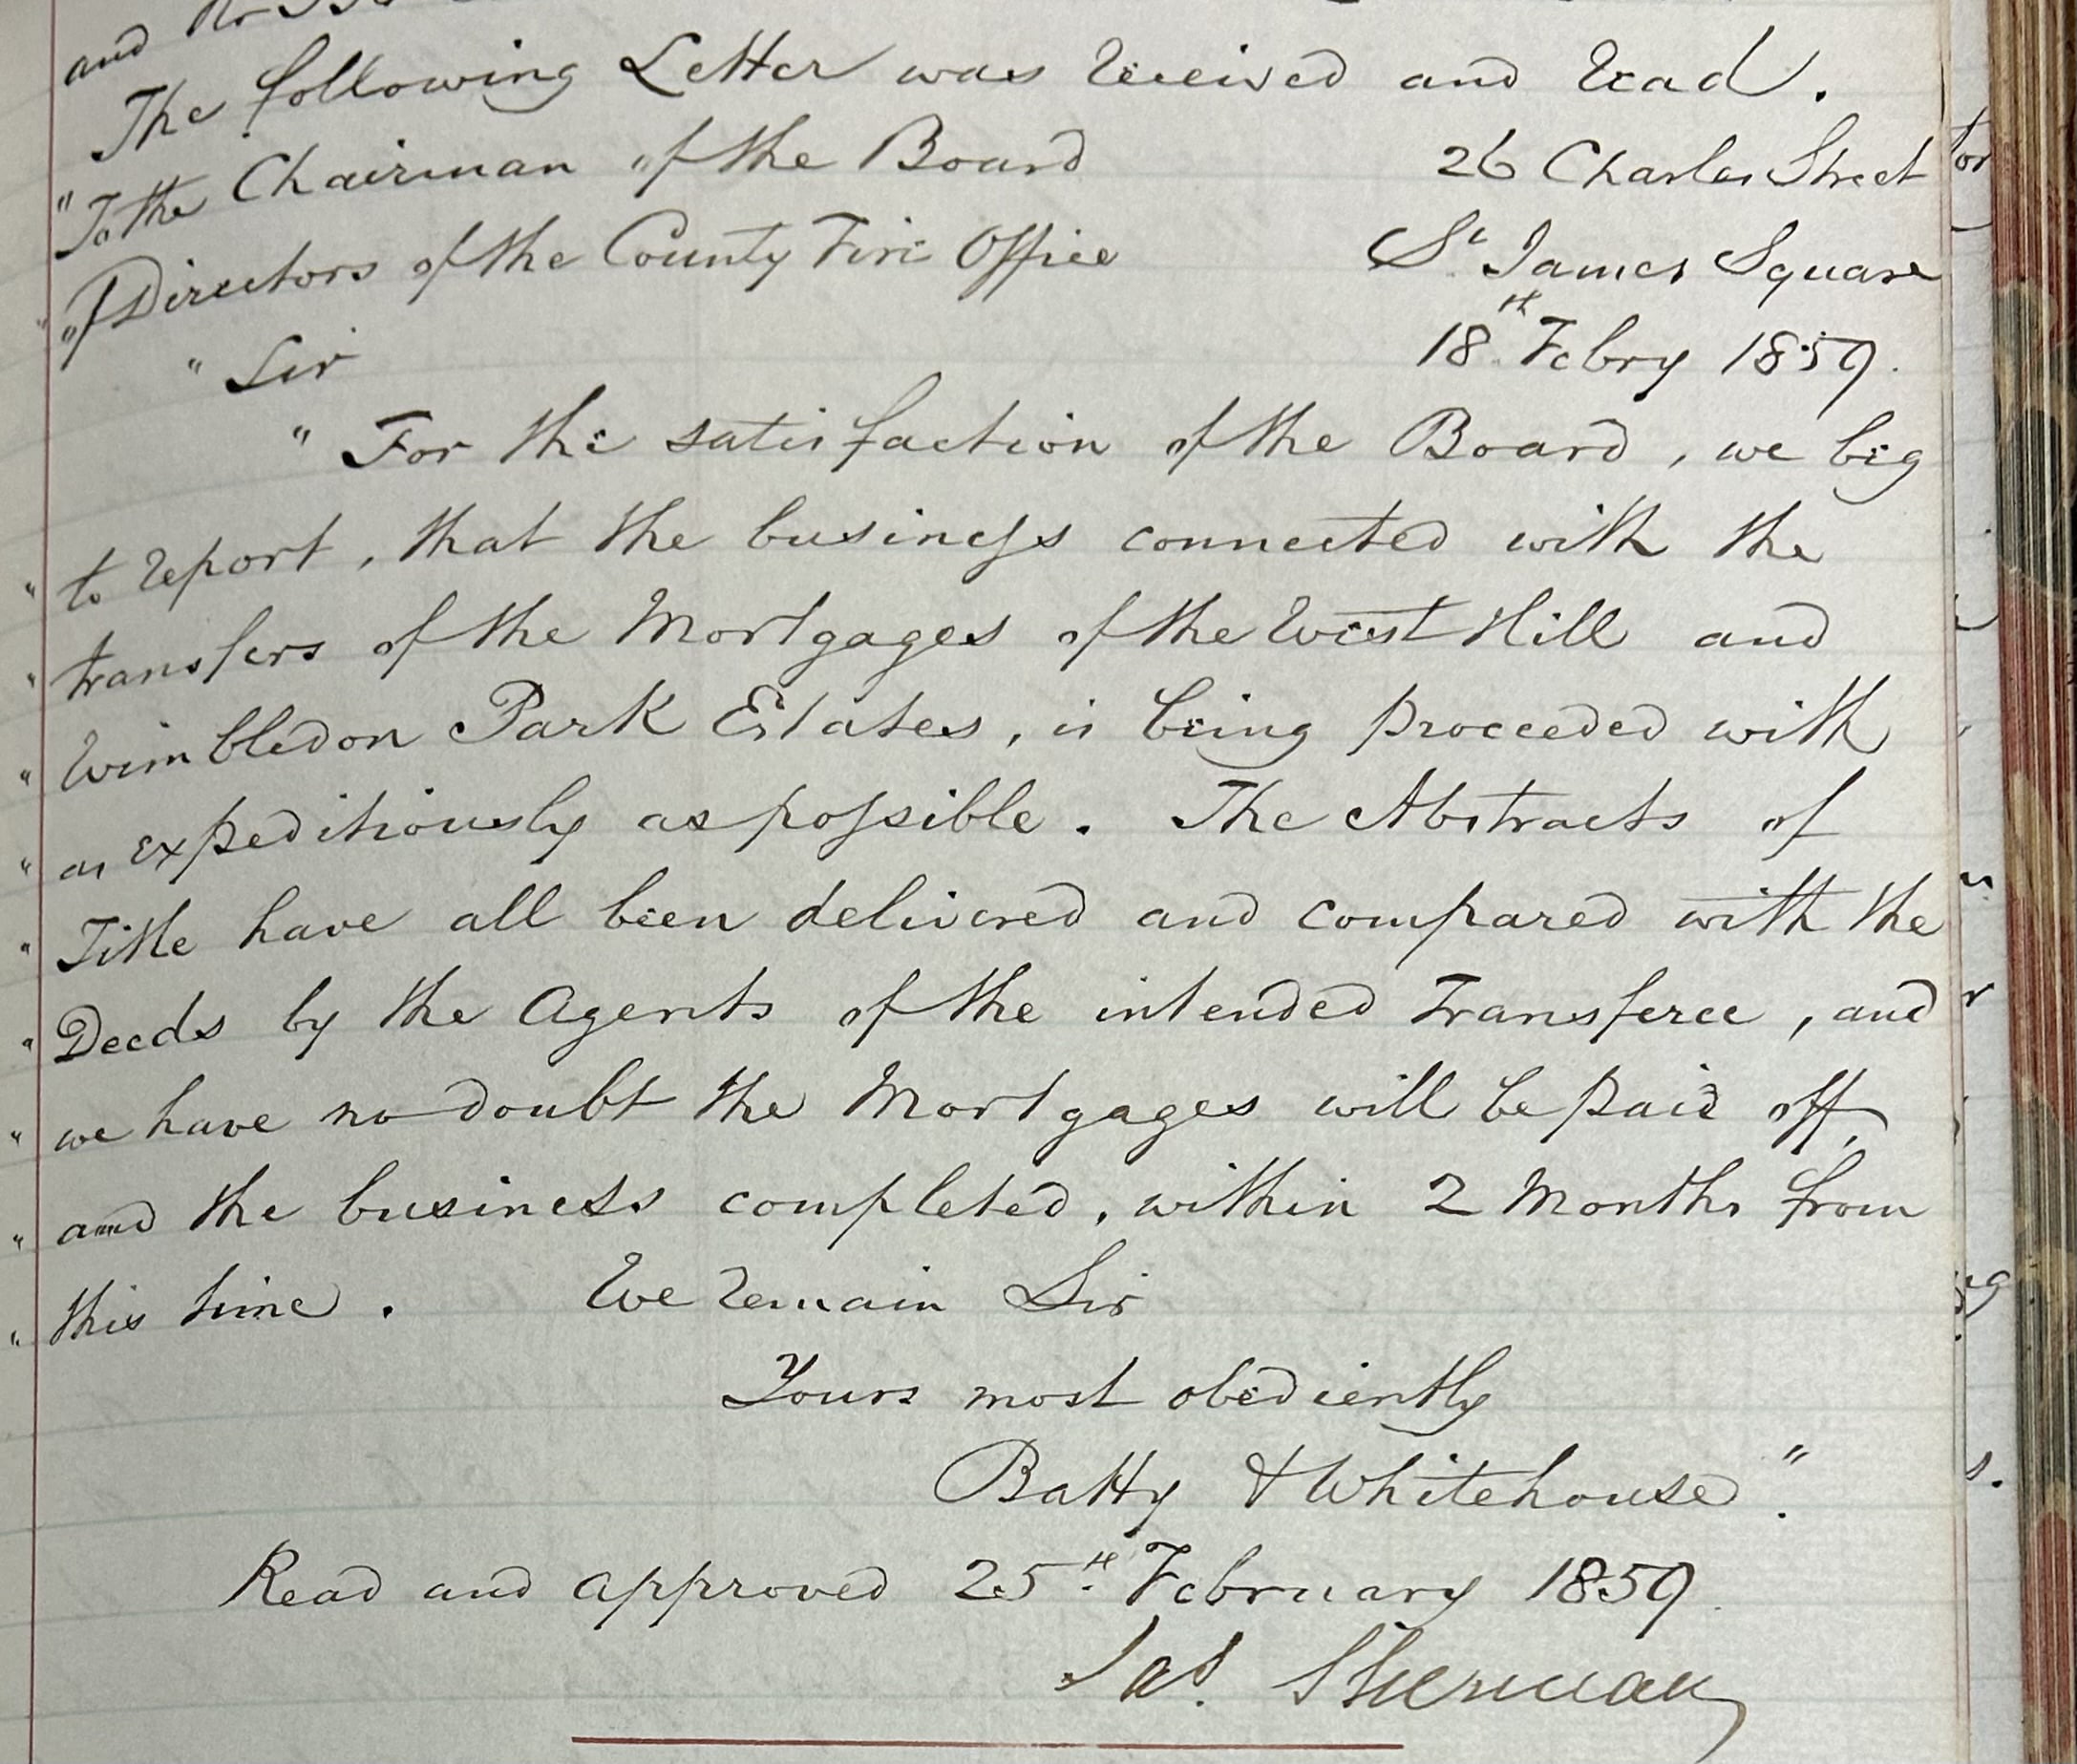 and
The following Letter was received and read.
"To the Chairman of the Board 26 Charles Street
"of Directors of the County Fire Office St James Square
"Sir 18th Febry 1859.
"For the satisfaction of the Board, we beg
"to report, that the business connected with the
"transfers of the Mortgages of the West Hill and
"Wimbledon Park Estates, is being proceeded with
"as expeditiously as possible. The Abstracts of
"Title have all been delivered and compared with the
"Deeds by the Agents of the intended Transferee, and
"we have no doubt the Mortgages will be paid off,
"and the business completed, within 2 Months from
"this time. We remain Sir
Yours most obediently
Batty & Whitehouse".
Read and approved 25th February 1859.
Jas. Sherman